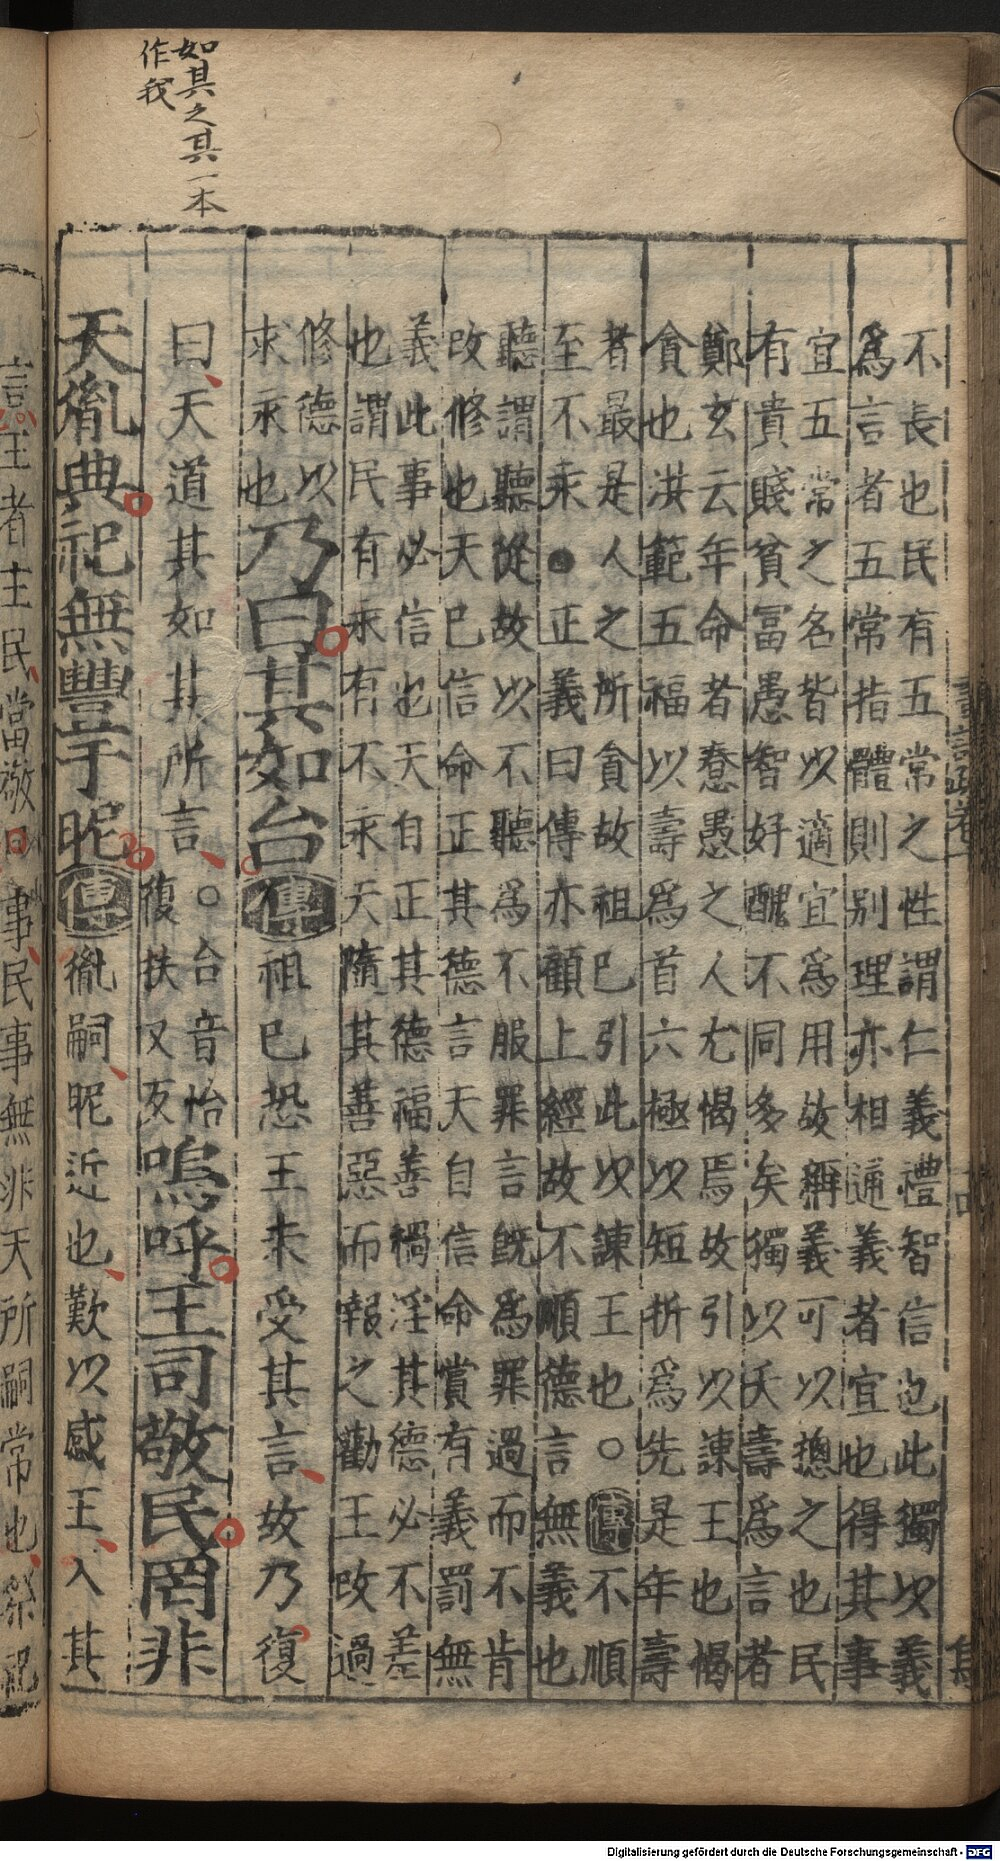 如其之其一本
作我
不長也民有五常之性謂仁義禮智信也此獨以義
爲言者五常指體則別理亦相通義者宜也得其事
宜五常之名皆以適宜爲用故稱義可以摠之也民
有貴賤貧富愚智好醜不同多矣獨以夭壽爲言者
鄭玄云年命者憃愚之人尤愒焉故引以諫王也愒
貪也洪範五福以壽爲首六極以短折爲先是年壽
者最是人之所貪故祖己引此以諫王也○傳不順
至不永●正義曰傳亦顧上經故不順德言無義也
聽謂聽從故以不聽爲不服罪言旣爲罪過而不肯
改修也天已信命正其德言天自信命賞有義罰無
義此事必信也天自正其德福善禍淫其德必不差
也謂民有永有不永天隨其善惡而報之勸王改過
修德以
求永也乃曰其如台傳祖己恐王未受其言故乃復
曰天道其如其所言○台音怡
復扶又反嗚呼王司敬民罔非
天胤典祀無豐于昵傳胤嗣昵近也歎以感王入其
言王者主民當敬民事民事無非天所嗣常也祭祀
Digitalisierung gefördert durch die Deutsche Forschungsgemeinschaft - DFG